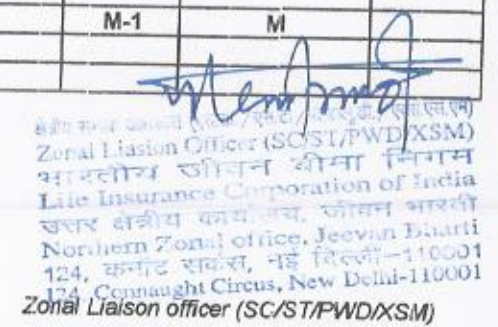 M-1 M
Zonal Liasion Officer (SC/ST/PWD/XSM)
भारतीय जीवन बीमा निगम
Life Insurance Corporation of India
उत्तर क्षेत्रीय कार्यालय, जीवन भारती
Northern Zonal office, Jeevan Bharti
124, कनॉट सर्कस, नई दिल्ली-110001
124, Connaught Circus, New Delhi-110001
Zonal Liaison officer (SC/ST/PWD/XSM)